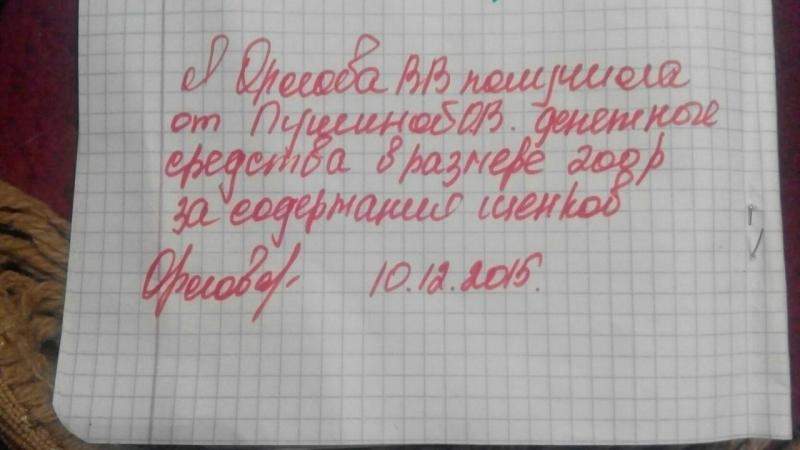 Я Орлова ВВ получила
от Пушиной О.В. денежные
средства в размере 200 р
за содержания щенков
Орлова 10.12.2015.